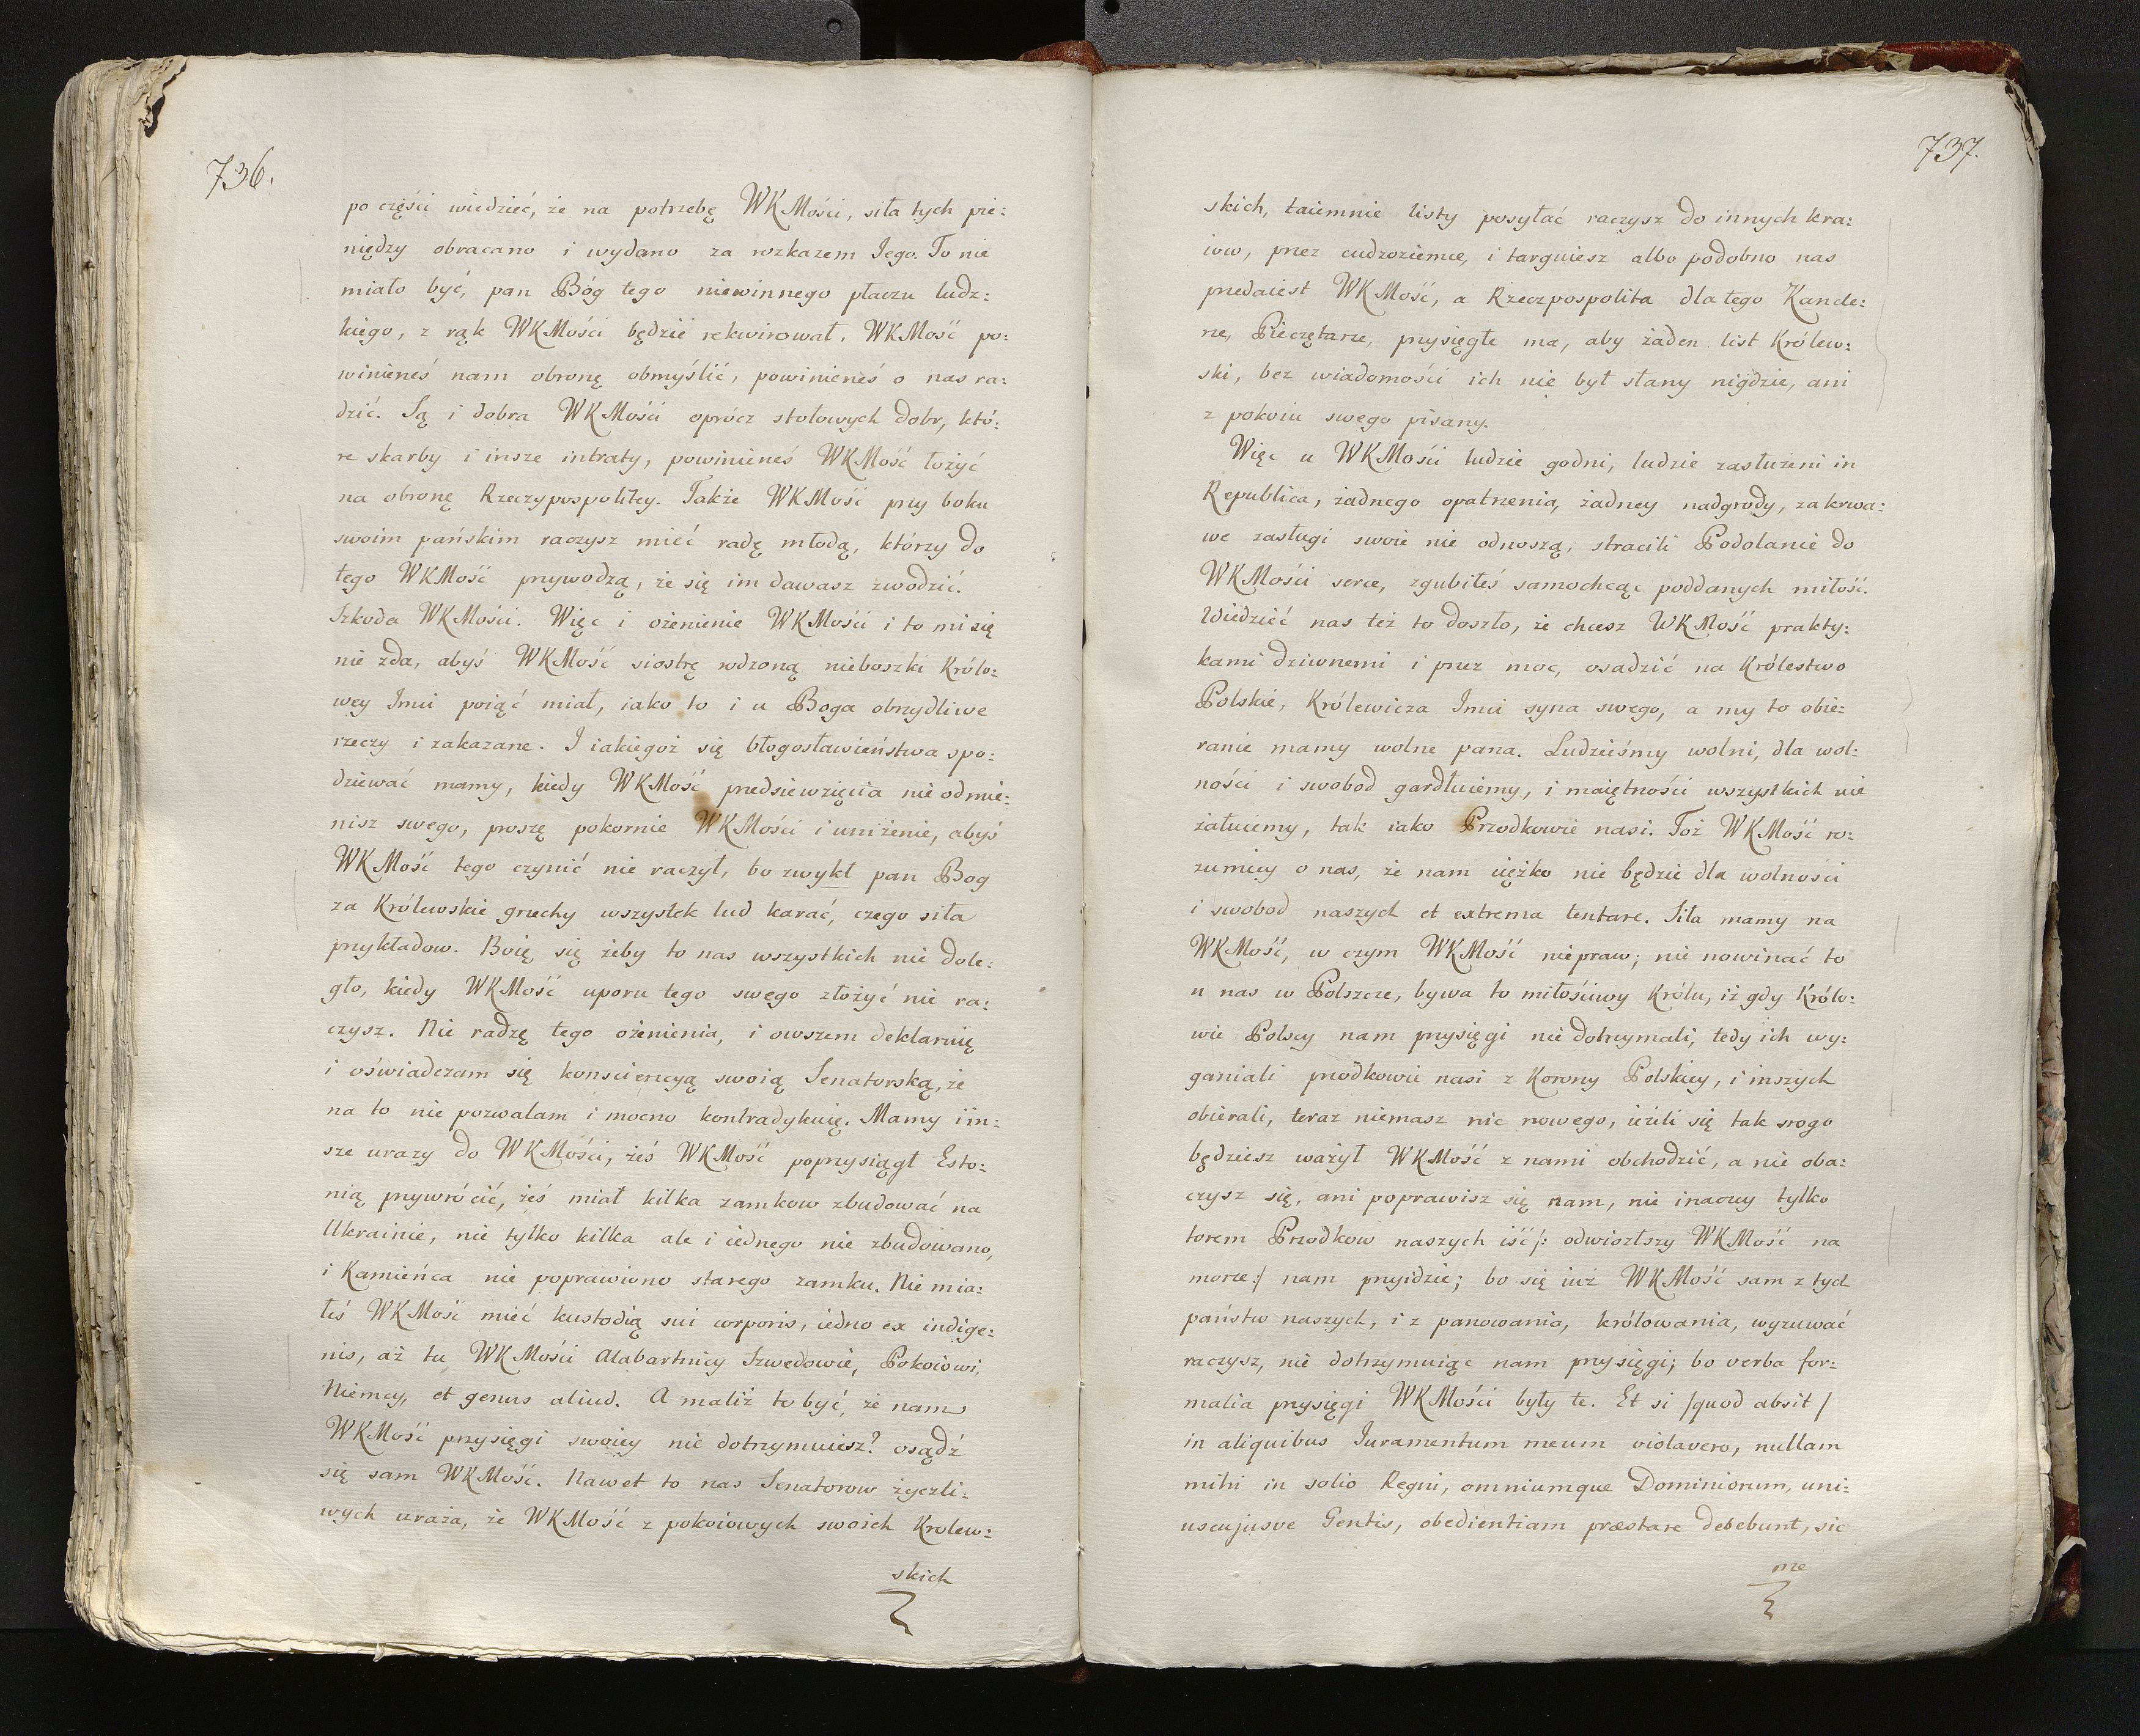 736.
po części wiedzieć, że na potrzebę WKMości, siła tych pie:
niędzy obracano i wydano za rozkazem Iego. To nie
miało być, pan Bóg tego niewinnego płaczu ludz:
kiego, z rąk WKMości będzie rekwirował. WKMość po:
winieneś nam obronę obmyślić, powinieneś o nas ra:
dzić. Są i dobra WKMości oprócz stołowych dobr, któ:
re skarby i insze intraty, powinieneś WKMość łożyć
na obronę Rzeczypospolitey. Także WKMość przy boku
swoim pańskim raczysz mieć radę młodą, którzy do
tego WKMość przywodzą, że się im dawasz zwodzić.
Szkoda WKMości. Więc i ożenienie WKMości i to mi się
nie zda, abyś WKMość siostrę rodzoną nieboszki Królo:
wey Imci poiąć miał, iako to i u Boga obrzydliwe
rzeczy i zakazane. I iakiegoż się błogosławieństwa spo:
dziewać mamy, kiedy WKMość przedsiewzięcia nie odmie:
nisz swego, proszę pokornie WKMości i uniżenie, abyś
WKMość tego czynić nie raczył, bo zwykł pan Bog
za Królewskie grzechy wszystek lud karać, czego siła
przykładow. Boię się żeby to nas wszystkich nie dole:
gło, kiedy WKMość uporu tego swego złożyć nie ra:
czysz. Nie radzę tego ożenienia, i owszem deklaruię
i oświadczam się konsciencyą swoią Senatorską, że
na to nie pozwalam i mocno kontradykuię. Mamy i in:
sze urazy do WKMości, żeś WKMość poprzysiągł Esto:
nią przywrócić, żeś miał kilka zamkow zbudować na
Ukrainie, nie tylko kilka ale i iednego nie zbudowano,
i Kamieńca nie poprawiono starego zamku. Nie mia:
łeś WKMość mieć kustodią sui corporis, iedno ex indige:
nis, aż tu WKMości Alabartnicy Szwedowie, Pokoiowi,
Niemcy, et genus aliud. A maliż to być, że nam
WKMość przysięgi swoiey nie dotrzymuiesz? osądź
się sam WKMość. Nawet to nas Senatorow życzli:
wych uraża, że WKMość z pokoiowych swoich Krolew:
skich
737.
skich, taiemnie listy posyłać raczysz do innych kra:
iow, przez cudzoziemce, i targuiesz albo podobno nas
przedaiesz WKMość, a Rzeczpospolita dla tego Kancle:
rze, Pieczętarze, przysięgłe ma, aby żaden list Królew:
ski, bez wiadomości ich nie był słany nigdzie, ani
z pokoiu swego pisany.
Więc u WKMości ludzie godni, ludzie zasłużeni in
Republica, żadnego opatrzenia, żadney nadgrody, za krwa:
we zasługi swoie nie odnoszą, stracili Podolanie do
WKMości serce, zgubiłeś samochcąc poddanych miłość.
Wiedzieć nas też to doszło, że chcesz WKMość prakty:
kami dziwnemi i przez moc, osadzić na Królestwo
Polskie, Królewicza Imci syna swego, a my to obie:
ranie mamy wolne pana. Ludzieśmy wolni, dla wol:
ności i swobod gardłuiemy, i maiętności wszystkich nie
żałuiemy, tak iako Przodkowie nasi. Toż WKMość ro:
zumiey o nas, że nam ciężko nie będzie dla wolności
i swobod naszych et extrema tentare. Siła mamy na
WKMość, w czym WKMość nie praw; nie nowinać to
u nas w Polszcze, bywa to miłościwy Królu, iż gdy Królo:
wie Polscy nam przysięgi nie dotrzymali, tedy ich wy:
ganiali przodkowie nasi z Korony Polskiey, i inszych
obierali, teraz niemasz nic nowego, ieżeli się tak srogo
będziesz ważył WKMość z nami obchodzić, a nie oba:
czysz się, ani poprawisz się nam, nie inaczey tylko
torem Przodkow naszych iść /: odwiozłszy WKMość na
morze :/ nam przyidzie; bo się iuż WKMość sam z tych
państw naszych, i z panowania, królowania, wyzuwać
raczysz, nie dotrzymuiąc nam przysięgi; bo verba for:
malia przysięgi WKMości były te. Et si /quod absit/
in aliquibus Iuramentum meum violavero, nullam
mihi in solio Regni, omniumque Dominiorum, uni:
uscujusve Gentis, obedientiam præstare debebunt, sic
me